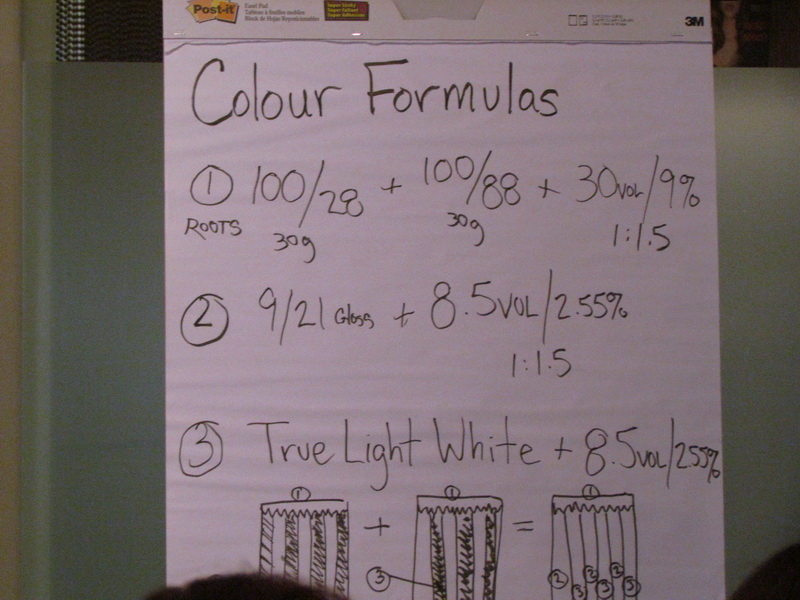 Post-it
Easel Pad
Super Sticky
3M
Colour Formulas
1 100/28 + 100/88 + 30VOL/9%
ROOTS 30g 30g 1:1.5
2 9/21 Gloss + 8.5VOL/2.55%
1:1.5
3 True Light White + 8.5VOL/2.55%
1 + 1 = 1
3 2 3 2 3 2 3